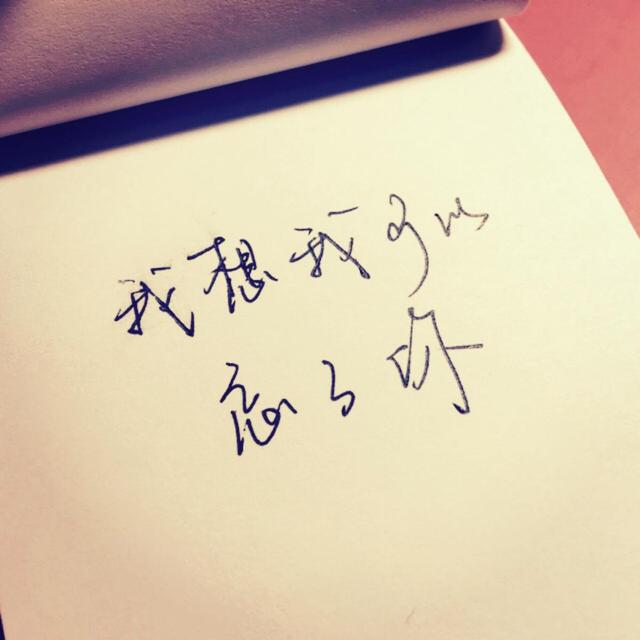 我想我可以
忘了你